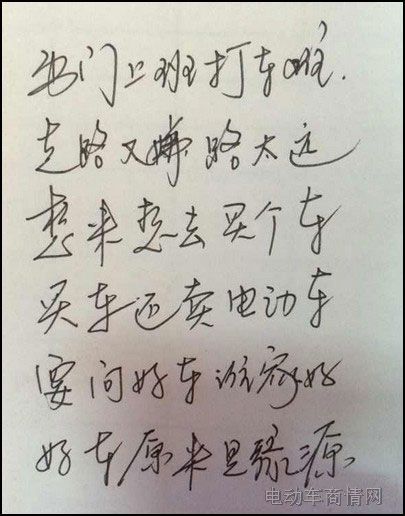 出门上班打车难.
走路又嫌路太远
想来想去买个车
买车还卖电动车
要问好车谁家好
好车原来是绿源
电动车商情网